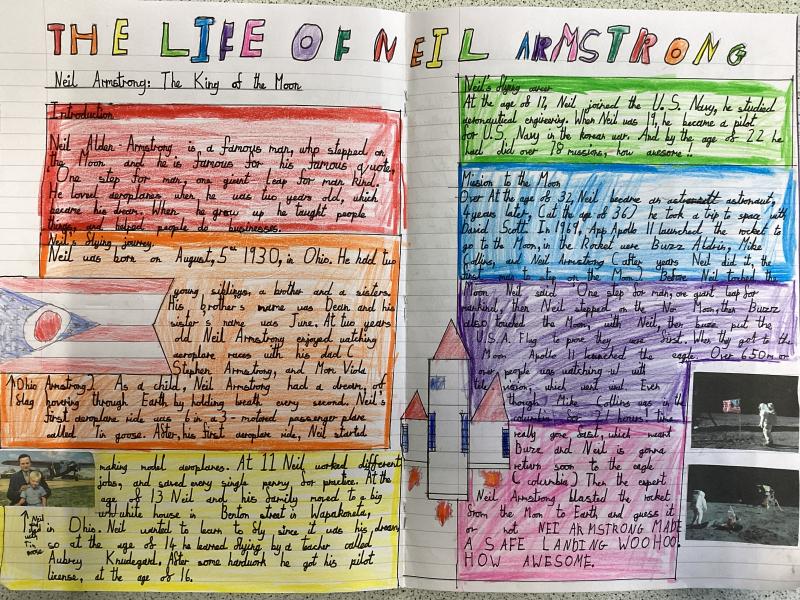 THE LIFE OF NEIL ARMSTRONG
Neil Armstrong: The King of the Moon
Introduction
Neil Alden Armstrong is a famous man, who stepped on
the Moon and he is famous for his famous quote,
"One step for man, one giant leap for man kind.
He loved aeroplanes when he was two years old, which
became his dream. When he grew up he taught people
things, and helped people do businesses.
Neil's flying journey.
Neil was born on August, 5th 1930, in Ohio. He had two
young siblings, a brother and a sister.
His brother's name was Dean and his
sister's name was June. At two years
old Neil Armstrong enjoyed watching
aeroplane races with his dad (
Stephen Armstrong, and Mom Viola
Armstrong) As a child, Neil Armstrong had a dream, of
hovering through Earth by holding breath every second. Neil's
first aeroplane ride was 6 in a 3 motored passenger plane
called Tin goose. After, his first aeroplane ride, Neil started
↑Ohio
flag
making model aeroplanes. At 11 Neil worked different
jobs, and saved every single penny for practice. At the
age of 13 Neil and his family moved to a big
white house in Benton street in Wapakoneta,
in Ohio. Neil wanted to learn to fly since it was his dream
so at the age of 14 he learned flying by a teacher called
Aubrey Knudegard. After some hardwork he got his pilot
license, at the age of 16.
Neil's flying career
At the age of 17, Neil joined the U.S. Navy, he studied
aeronautical engineering. When Neil was 19, he became a pilot
for U.S. Navy in the korean war. And by the age of 22 he
had did over 78 missions, how awesome!!
Mission to the Moon
Over At the age of 32, Neil became an astronaut,
4 years later, (at the age of 36) he took a trip to space with
David Scott. In 1969, Apollo 11 launched the rocket to
go to the Moon, in the Rocket were Buzz Aldrin, Mike
Collins, and Neil Armstrong (after years Neil did it, the
first man to on the Moon.) Before Neil touched the
Moon Neil said "One step for man, one giant leap for
mankind, then Neil stepped on the Moon, then Buzz
also touched the Moon, with Neil, then buzz put the
U.S.A. Flag to prove they were first. When they got to the
Moon Apollo 11 launched the eagle. Over 650m
people was watching with
tele vision; which went well. Even
though Mike Collins was in the
really gone fast, which meant
Buzz and Neil is gonna
return soon to the eagle
(columbia) Then the expert
Neil Armstrong blasted the rocket
from the Moon to Earth and guess it
or not NEIL ARMSTRONG MADE
A SAFE LANDING WOOHOO.
HOW AWESOME.